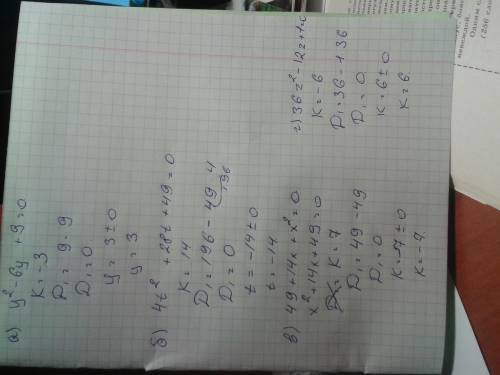 а) y² - 6y + 9 = 0
K = -3
D₁ = 9 - 9
D₁ = 0
y = 3 ± 0
y = 3
б) 4t² + 28t + 49 = 0
K = 14
D₁ = 196 - 49·4
196
D₁ = 0
t = -14 ± 0
t = -14
в) 49 + 14x + x² = 0
x² + 14x + 49 = 0
K = 7
D₁ = 49 - 49
D₁ = 0
K = -7 ± 0
K = -7
г) 36z² - 12z + 1 = 0
K = -6
D₁ = 36 - 36
D₁ = 0
K = 6 ± 0
K = 6